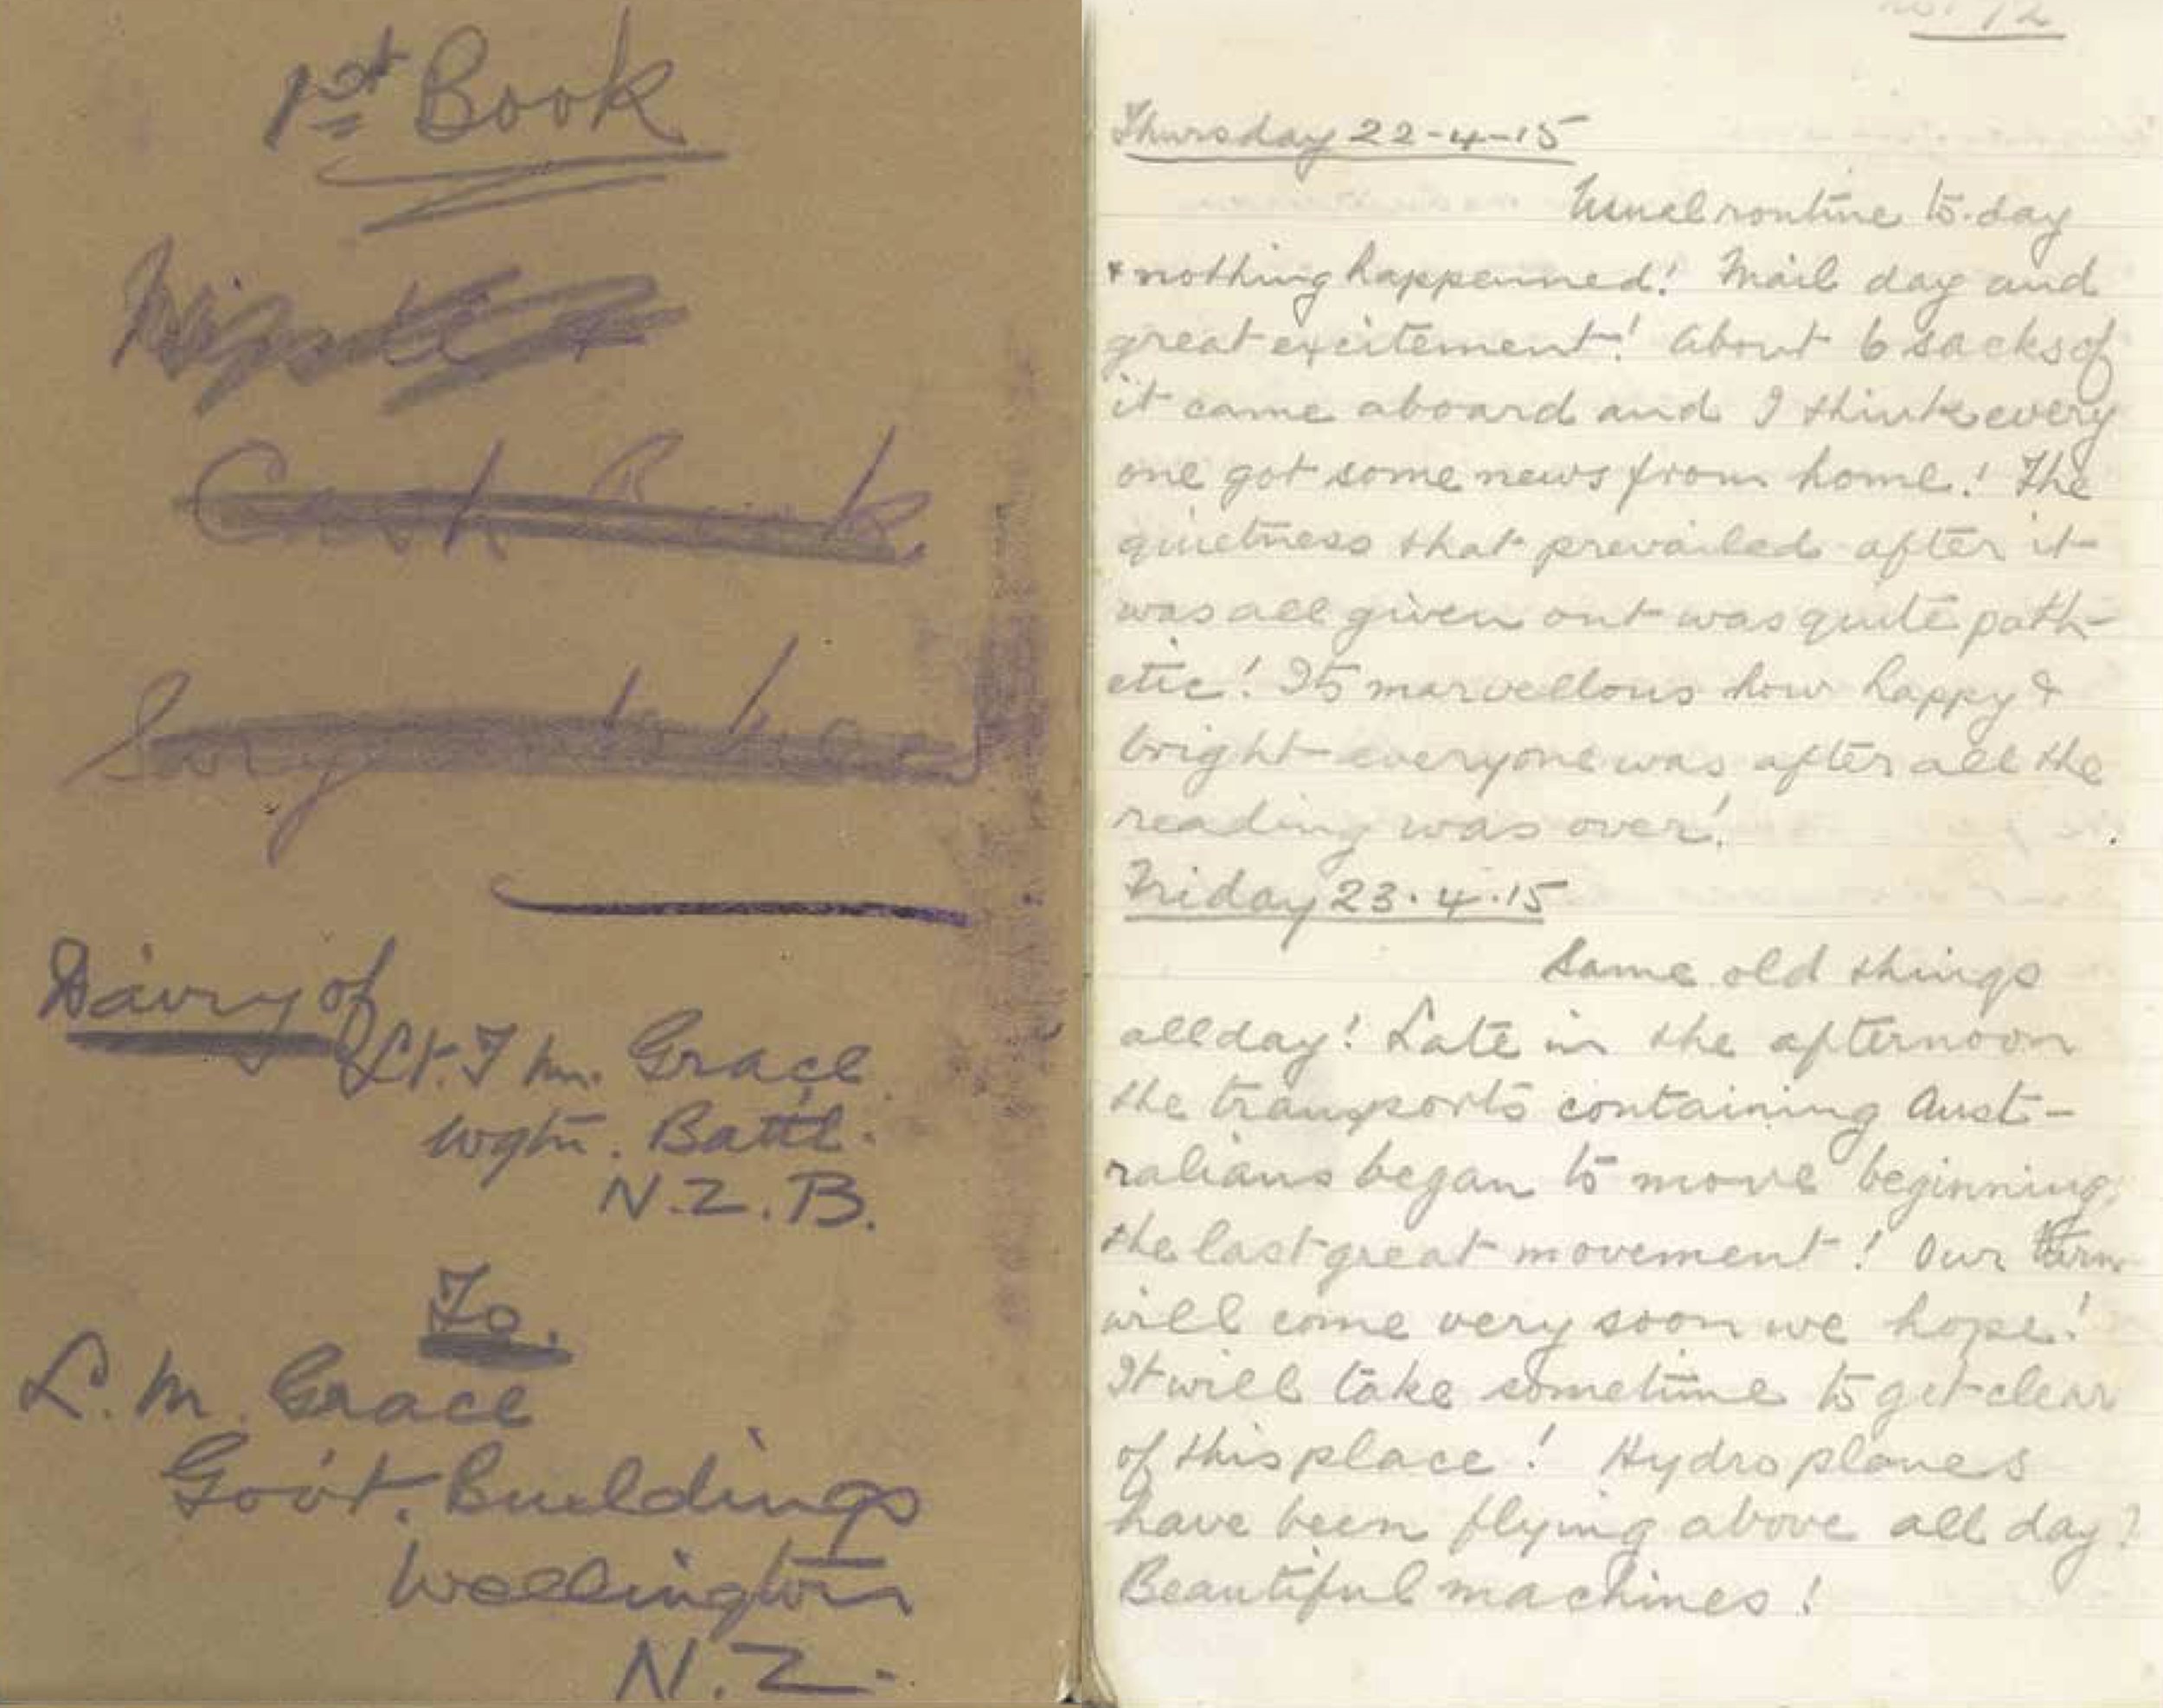 1st Book
Cash Book
Diary of
Lt. T M. Grace
Wgtn. Battl.
N.Z.B.
To.
L. M. Grace
Gov't. Buildings
Wellington
N.Z.
No. 72
Thursday 22-4-15
Usual routine to-day
& nothing happenned! Mail day and
great excitement! About 6 sacks of
it came aboard and I think every
one got some news from home! The
quietness that prevailed after it
was all given out was quite path-
etic! Its marvellous how happy &
bright everyone was after all the
reading was over!
Friday 23.4.15
Same old things
all day! Late in the afternoon
the transports containing Aust-
ralians began to move beginning
the last great movement! Our turn
will come very soon we hope!
It will take sometime to get clear
of this place! Hydroplanes
have been flying above all day!
Beautiful machines!